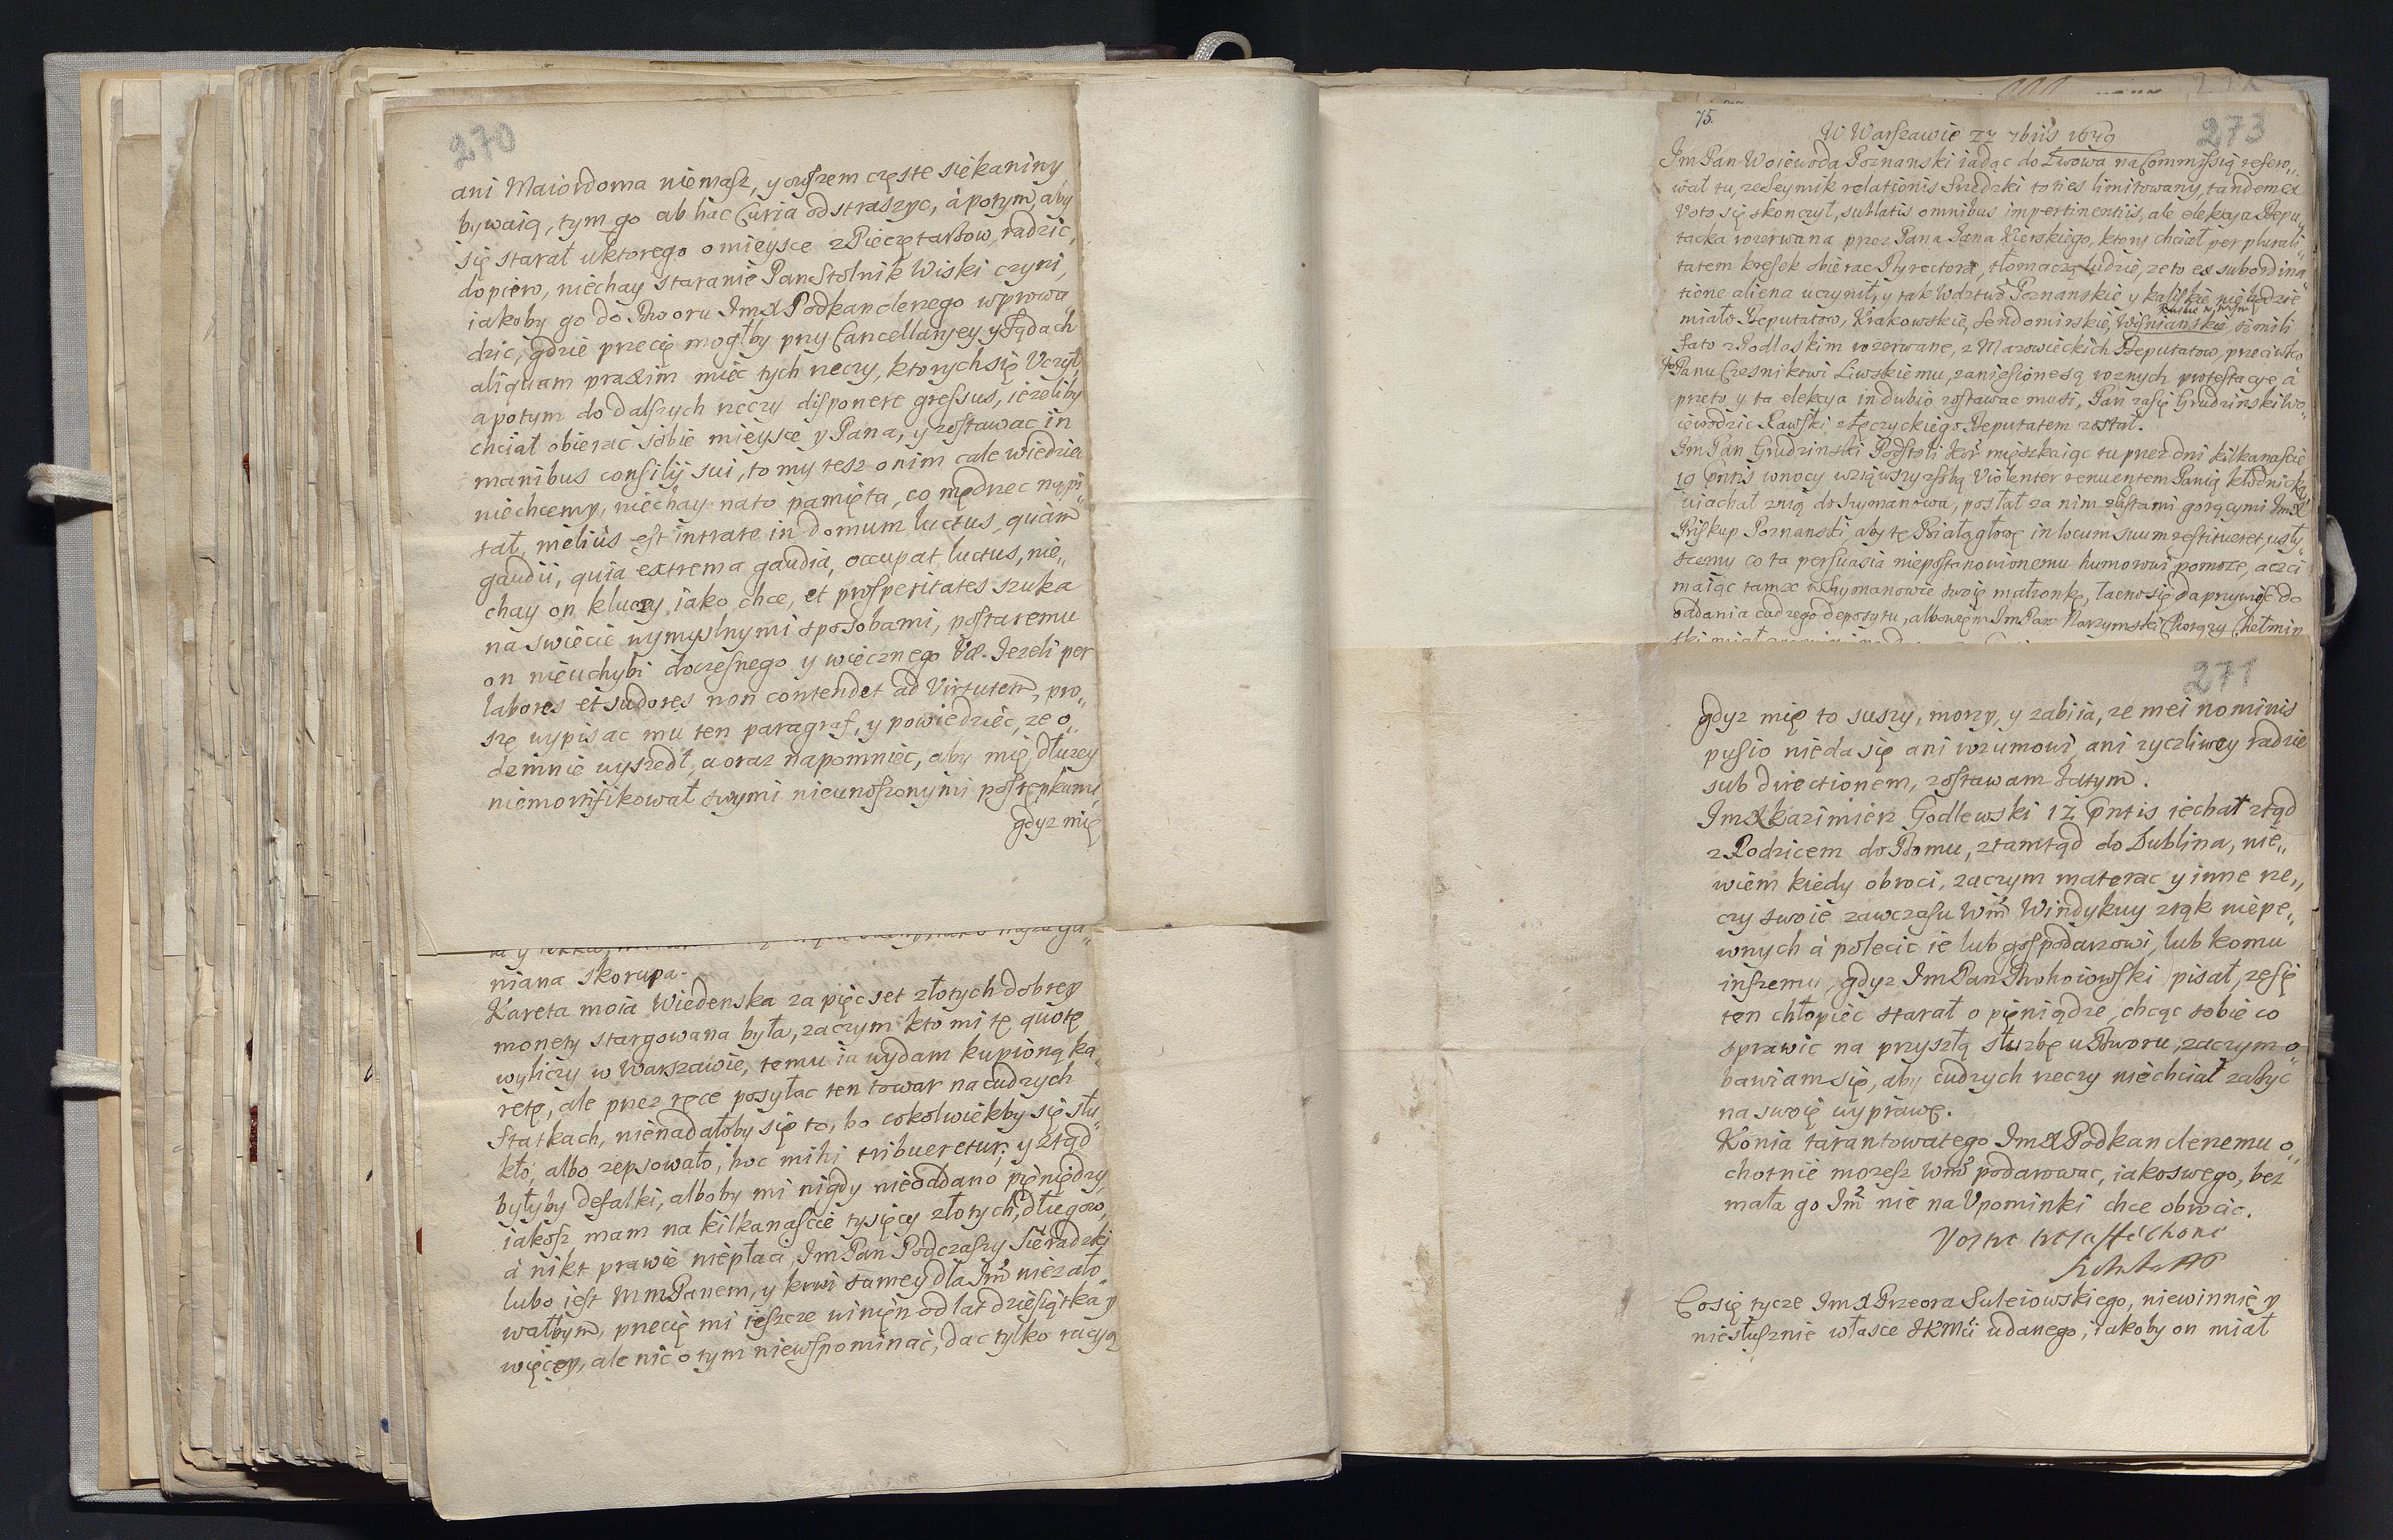 270
ani Maiordoma niemasz, y owszem częste siekaniny
bywaią, tym go ab hac Curia odstraszyc, á potym, aby
się starał uktorego o mieysce z Pieczętarzow, radzic,
dopiero, niechay staranie Pan Stolnik Wiski czyni,
iakoby go do Dworu ImX Podkanclerzego wprowa
dzic, gdzie przecię mogłby przy Cancellaryey y Sądach
aliquam praxim miec tych rzeczy, ktorych się Uczył,
a potym do dalszych rzeczy disponere gressus, iezeliby
chciał obierac sobie mieysce y Pana, y zostawac in
manibus consilij sui, to my tesz o nim cale wiedziec
niechcemy, niechay na to pamięta, co mędrzec napi„
sał, melius est intrare in domum luctus, quàm
gaudii, quia extrema gaudia, occupat luctus, nie„
chay on kluczy, iako chce, et prosperitates szuka
na swiecie wymyslnymi sposobami, postaremu
on nieuchybi doczesnego y wiecznego Væ. Iezeli per
labores et sudores non contendet ad Virtutem, pro„
szę wypisac mu ten paragraf, y powiedziec, ze o„
demnie wyszedł, a oraz napomniec, aby mię dłuzey
niemortifikował swymi nieunoszonymi postępkami,
gdyz mię
niana skorupa.
Kareta moia Wiedenska za pięcset złotych dobrey
monety stargowana była, zaczym kto mi tę quotę
wyliczy w Warszawie, temu ia wydam kupioną ka„
retę, ale przez ręce posyłac ten towar na cudzych
statkach, nienadałoby się to, bo cokolwiekby się stłu„
kło, albo zepsowało, hoc mihi tribueretur, y ztąd
byłyby defalki, alboby mi nigdy nieoddano pięniędzy,
iakosz mam na kilkanascie tysięcy złotych, długow,
á nikt prawie niepłaci, Im Pan Podczaszy Sieradzki
lubo iest MmPanem, y krwi samey dla Imci niezało„
wałbym, przecię mi ieszcze winien od lat dziesiątka y
więcey, ale nic o tym niewspominac, dac tylko racyą
75.
273
W Warszawie 22 7bris 1679
Im Pan Woiewoda Poznanski iadąc do Lwowa na Commissią refero„
wał tu, ze Seymik relationis Sredzki toties limitowany, tandem ex
Voto się skonczył, sublatis omnibus impertinentiis, ale elekcya Depu„
tacka rozerwana przez Pana Jana Kierskiego, ktory chciał per plurali„
tatem kresek obierac Dyrectora, tłomaczą ludzie, ze to ex subordina„
tione aliena uczynił, y tak Wdztwo Poznanskie y Kaliskie nie będzie
miało Deputatow, Krakowskie, Sendomirskie, simili
fato z Podlaskim rozerwane, z Mazowieckich Deputatow, przeciwko
Panu Czesnikowi Liwskiemu, zaniesione są roznych protestacye á
przeto y ta elekcya in dubio zostawac musi, Pan zasię Grudzinski Wo„
iewodzic Rawski z Łęczyckiego Deputatem został.
Im Pan Grudzinski Podstoli Kor mięszkaiąc tu przez dni kilkanascie
19 pntis w nocy wziąwszy z sobą Violenter renuentem Panią Kłodnicką
uiachał z nią do Szymanowa, posłał za nim z listami gorącymi ImX
Biskup Poznanski, aby tę Białągłowę in locum suum restitueret, usły„
szemy co ta persuasia niepostanowionemu humorowi pomoze, acz i
maiąc tamze w Szymanowie swoię małzonkę, łacno się da przywięsc do
oddania cudzego depozytu, Im Pan Narzymski Chorązy Chełmin
271
gdyz mię to suszy, morzy, y zabiia, ze mei nominis
pusio nieda się ani rozumowi, ani zyczliwey radzie
sub directionem, zostawam zatym.
ImX Kazimierz Godlewski 12 pntis iechał ztąd
z Rodzicem do Domu, ztamtąd do Lublina, nie„
wiem kiedy obroci, zaczym materac y inne rze„
czy swoie zawczasu Wmć Windykuy z rąk niepe„
wnych á polecic ie lub gospodarzowi, lub komu
inszemu, gdyz Im Pan Drohoiowski pisał, ze się
ten chłopiec starał o pięniądze, chcąc sobie co
sprawic na przyszłą słuzbę u Dworu, zaczym o„
bawiam się, aby cudzych rzeczy niechciał zabyc
na swoię wyprawę.
Konia tarantowatego ImX Podkanclerzemu o„
chotnie mozesz Wmć podarowac, iako swego, bez
mała go Imć nie na Upominki chce obrocic.
Co się tycze ImX Przeora Suleiowskiego, niewinnie y
niesłusznie w łasce JKMci udanego, iakoby on miał